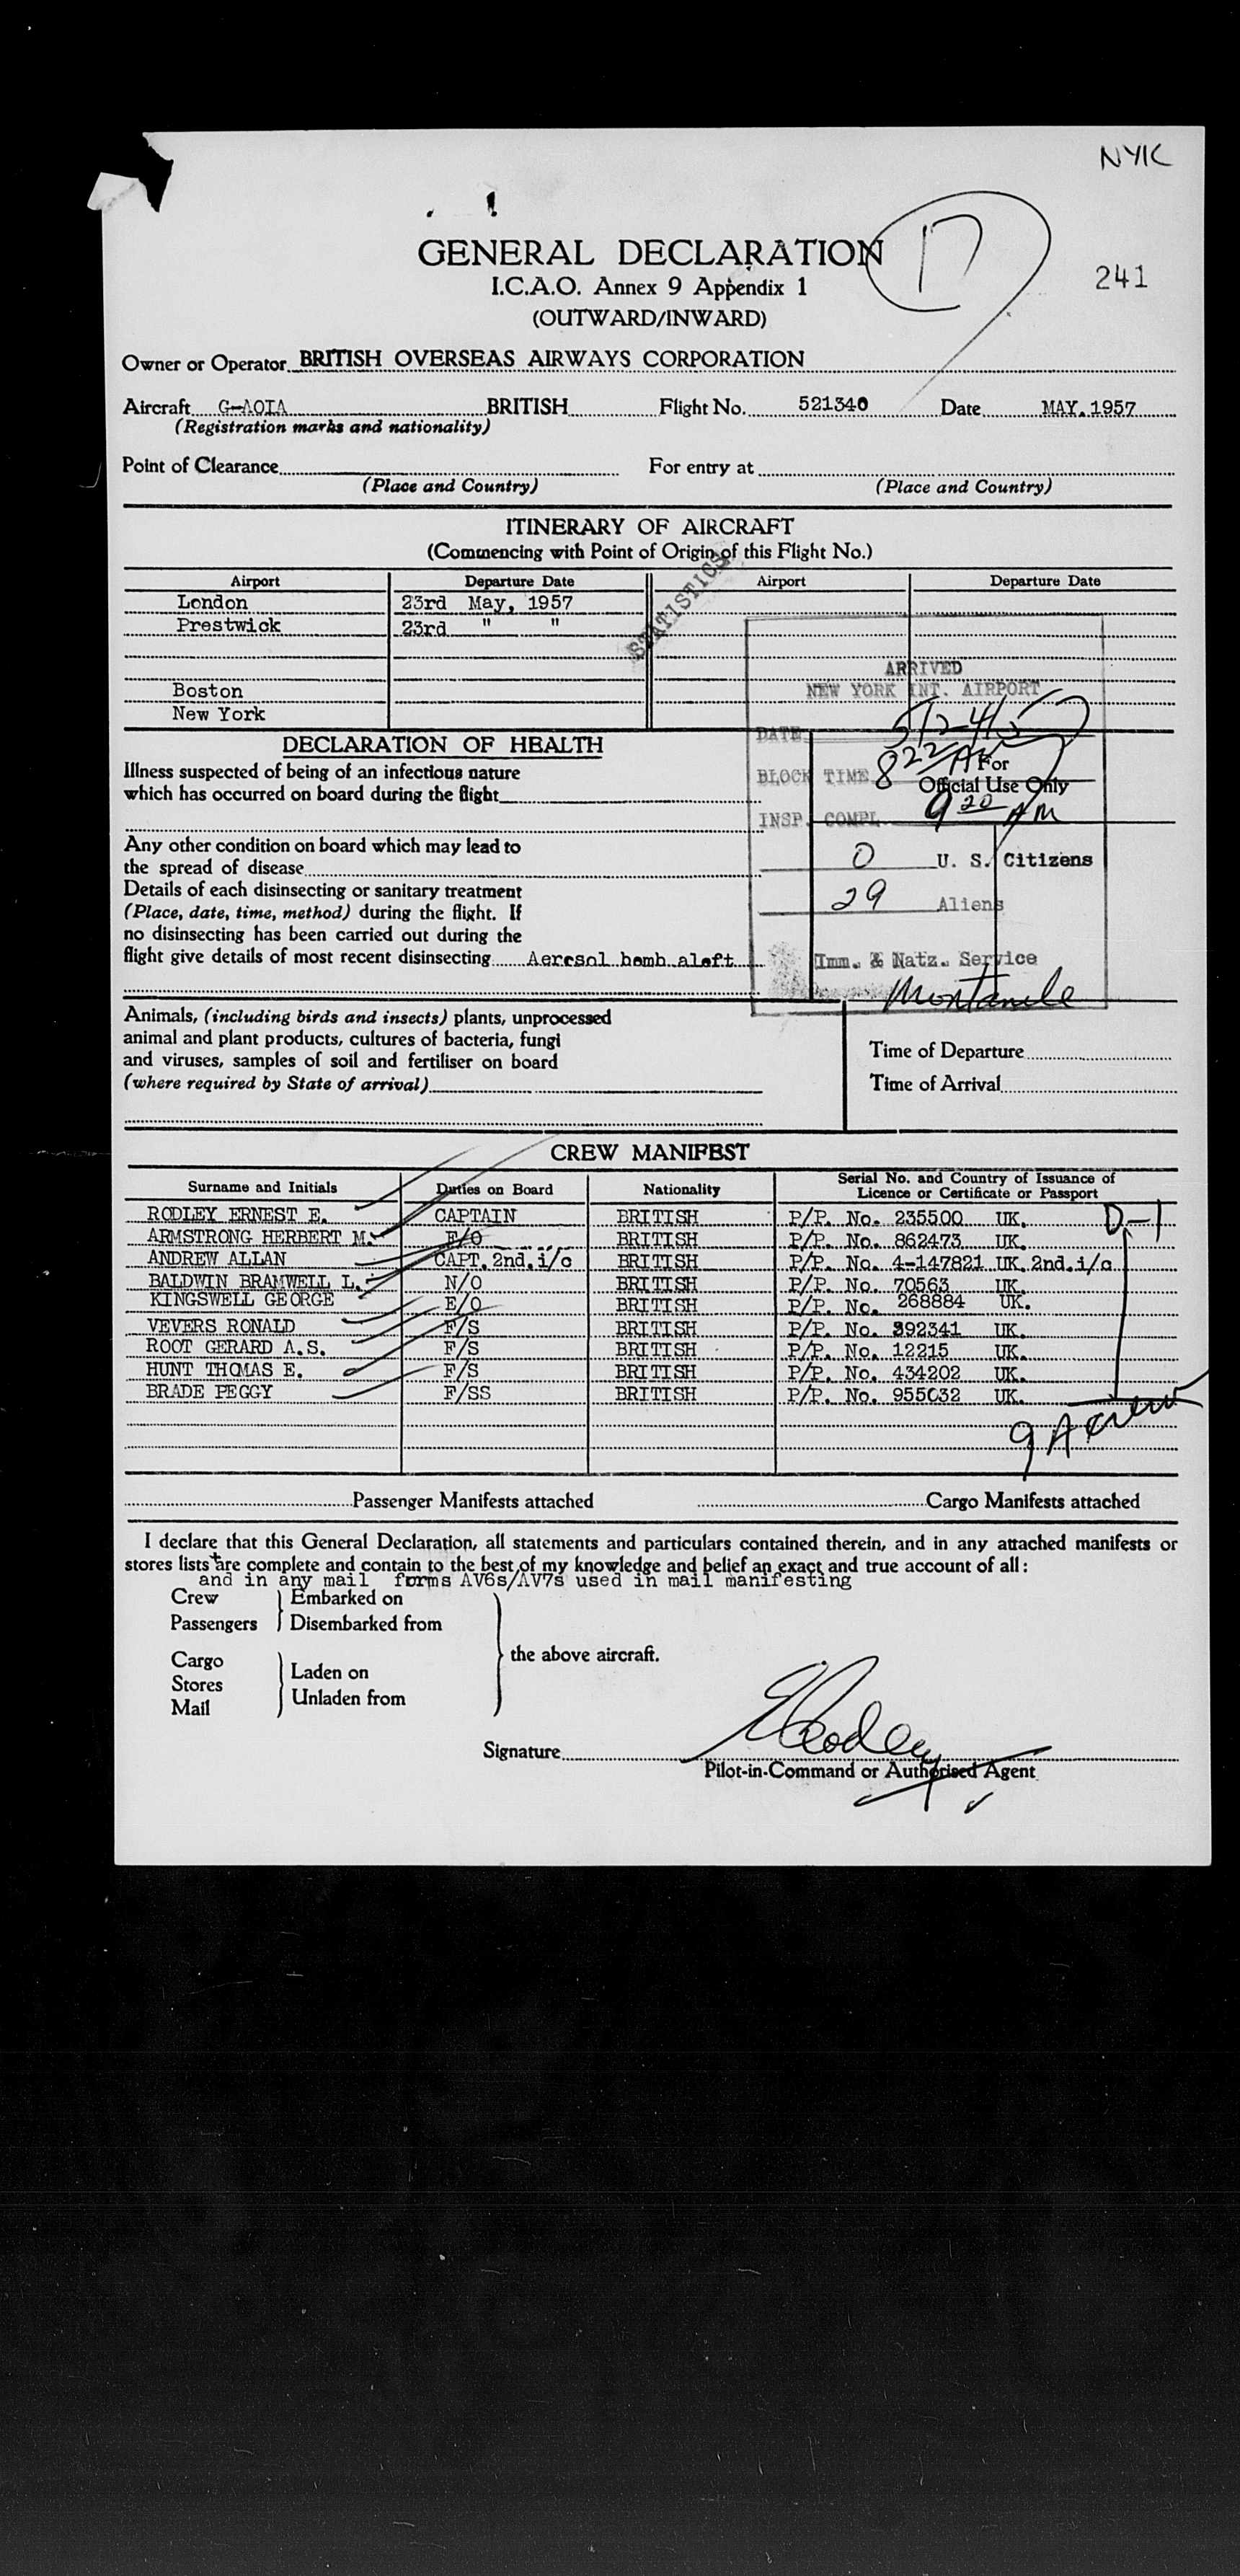 NYK
GENERAL DECLARATION
241
I.C.A.O. Annex 9 Appendix 1
(OUTWARD/INWARD)
Owner or Operator BRITISH OVERSEAS AIRWAYS CORPORATION
Aircraft G-AOIA BRITISH Flight No. 521340 Date MAY. 1957
(Registration marks and nationality)
Point of Clearance For entry at
(Place and Country) (Place and Country)
ITINERARY OF AIRCRAFT
(Commencing with Point of Origin of this Flight No.)
Airport Departure Date Airport Departure Date
London 23rd May, 1957
Prestwick 23rd " "
STATISTICS
Boston
New York
ARRIVED
NEW YORK INT. AIRPORT
DATE 5/24/57
BLOCK TIME 822 A
INSP. COMPL 920 AM
0 U. S. Citizens
29 Aliens
Imm. & Natz. Service
For
Official Use Only
DECLARATION OF HEALTH
Illness suspected of being of an infectious nature
which has occurred on board during the flight
Any other condition on board which may lead to
the spread of disease
Details of each disinsecting or sanitary treatment
(Place, date, time, method) during the flight. If
no disinsecting has been carried out during the
flight give details of most recent disinsecting Aeresol bomb aloft
Animals, (including birds and insects) plants, unprocessed
animal and plant products, cultures of bacteria, fungi
and viruses, samples of soil and fertiliser on board
(where required by State of arrival)
Time of Departure
Time of Arrival
CREW MANIFEST
Surname and Initials Duties on Board Nationality Serial No. and Country of Issuance of Licence or Certificate or Passport
RODLEY ERNEST E. CAPTAIN BRITISH P/P. No. 235500 UK. D-1
ARMSTRONG HERBERT M. F/O BRITISH P/P. No. 862473 UK.
ANDREW ALLAN CAPT. 2nd. i/c BRITISH P/P. No. 4-147821 UK. 2nd. i/c
BALDWIN BRAMWELL L. N/O BRITISH P/P. No. 70563 UK.
KINGSWELL GEORGE E/O BRITISH P/P. No. 268884 UK.
VEVERS RONALD F/S BRITISH P/P. No. 392341 UK.
ROOT GERARD A.S. F/S BRITISH P/P. No. 12215 UK.
HUNT THOMAS E. F/S BRITISH P/P. No. 434202 UK.
BRADE PEGGY F/SS BRITISH P/P. No. 955032 UK.
9 A crew
Passenger Manifests attached Cargo Manifests attached
I declare that this General Declaration, all statements and particulars contained therein, and in any attached manifests or
stores lists are complete and contain to the best of my knowledge and belief an exact and true account of all :
and in any mail forms AV6s/AV7s used in mail manifesting
Crew Embarked on
Passengers Disembarked from
the above aircraft.
Cargo
Stores Laden on
Mail Unladen from
Signature E Rodley
Pilot-in-Command or Authorised Agent